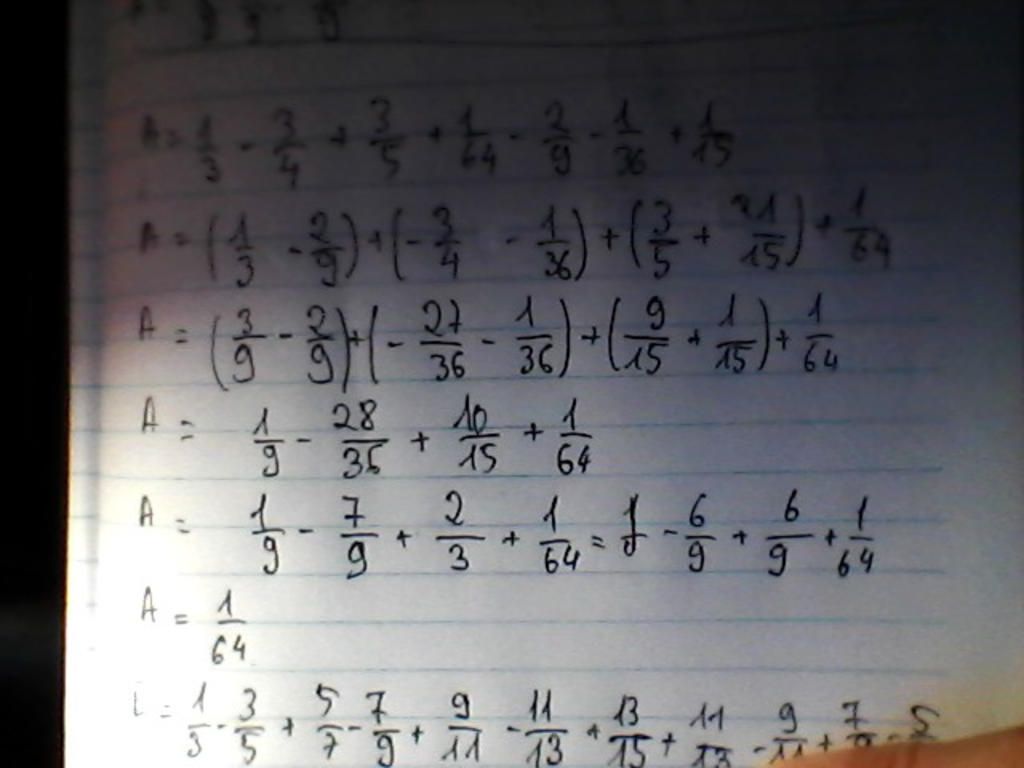 A = 1/3 - 3/4 + 3/5 + 1/64 - 2/9 - 1/36 + 1/15
A = (1/3 - 2/9) + (- 3/4 - 1/36) + (3/5 + 1/15) + 1/64
A = (3/9 - 2/9) + (- 27/36 - 1/36) + (9/15 + 1/15) + 1/64
A = 1/9 - 28/36 + 10/15 + 1/64
A = 1/9 - 7/9 + 2/3 + 1/64 = - 6/9 + 6/9 + 1/64
A = 1/64
= 1/3 - 3/5 + 5/7 - 7/9 + 9/11 - 11/13 + 13/15 + 11/13 - 9/11 + 7/9 - 5